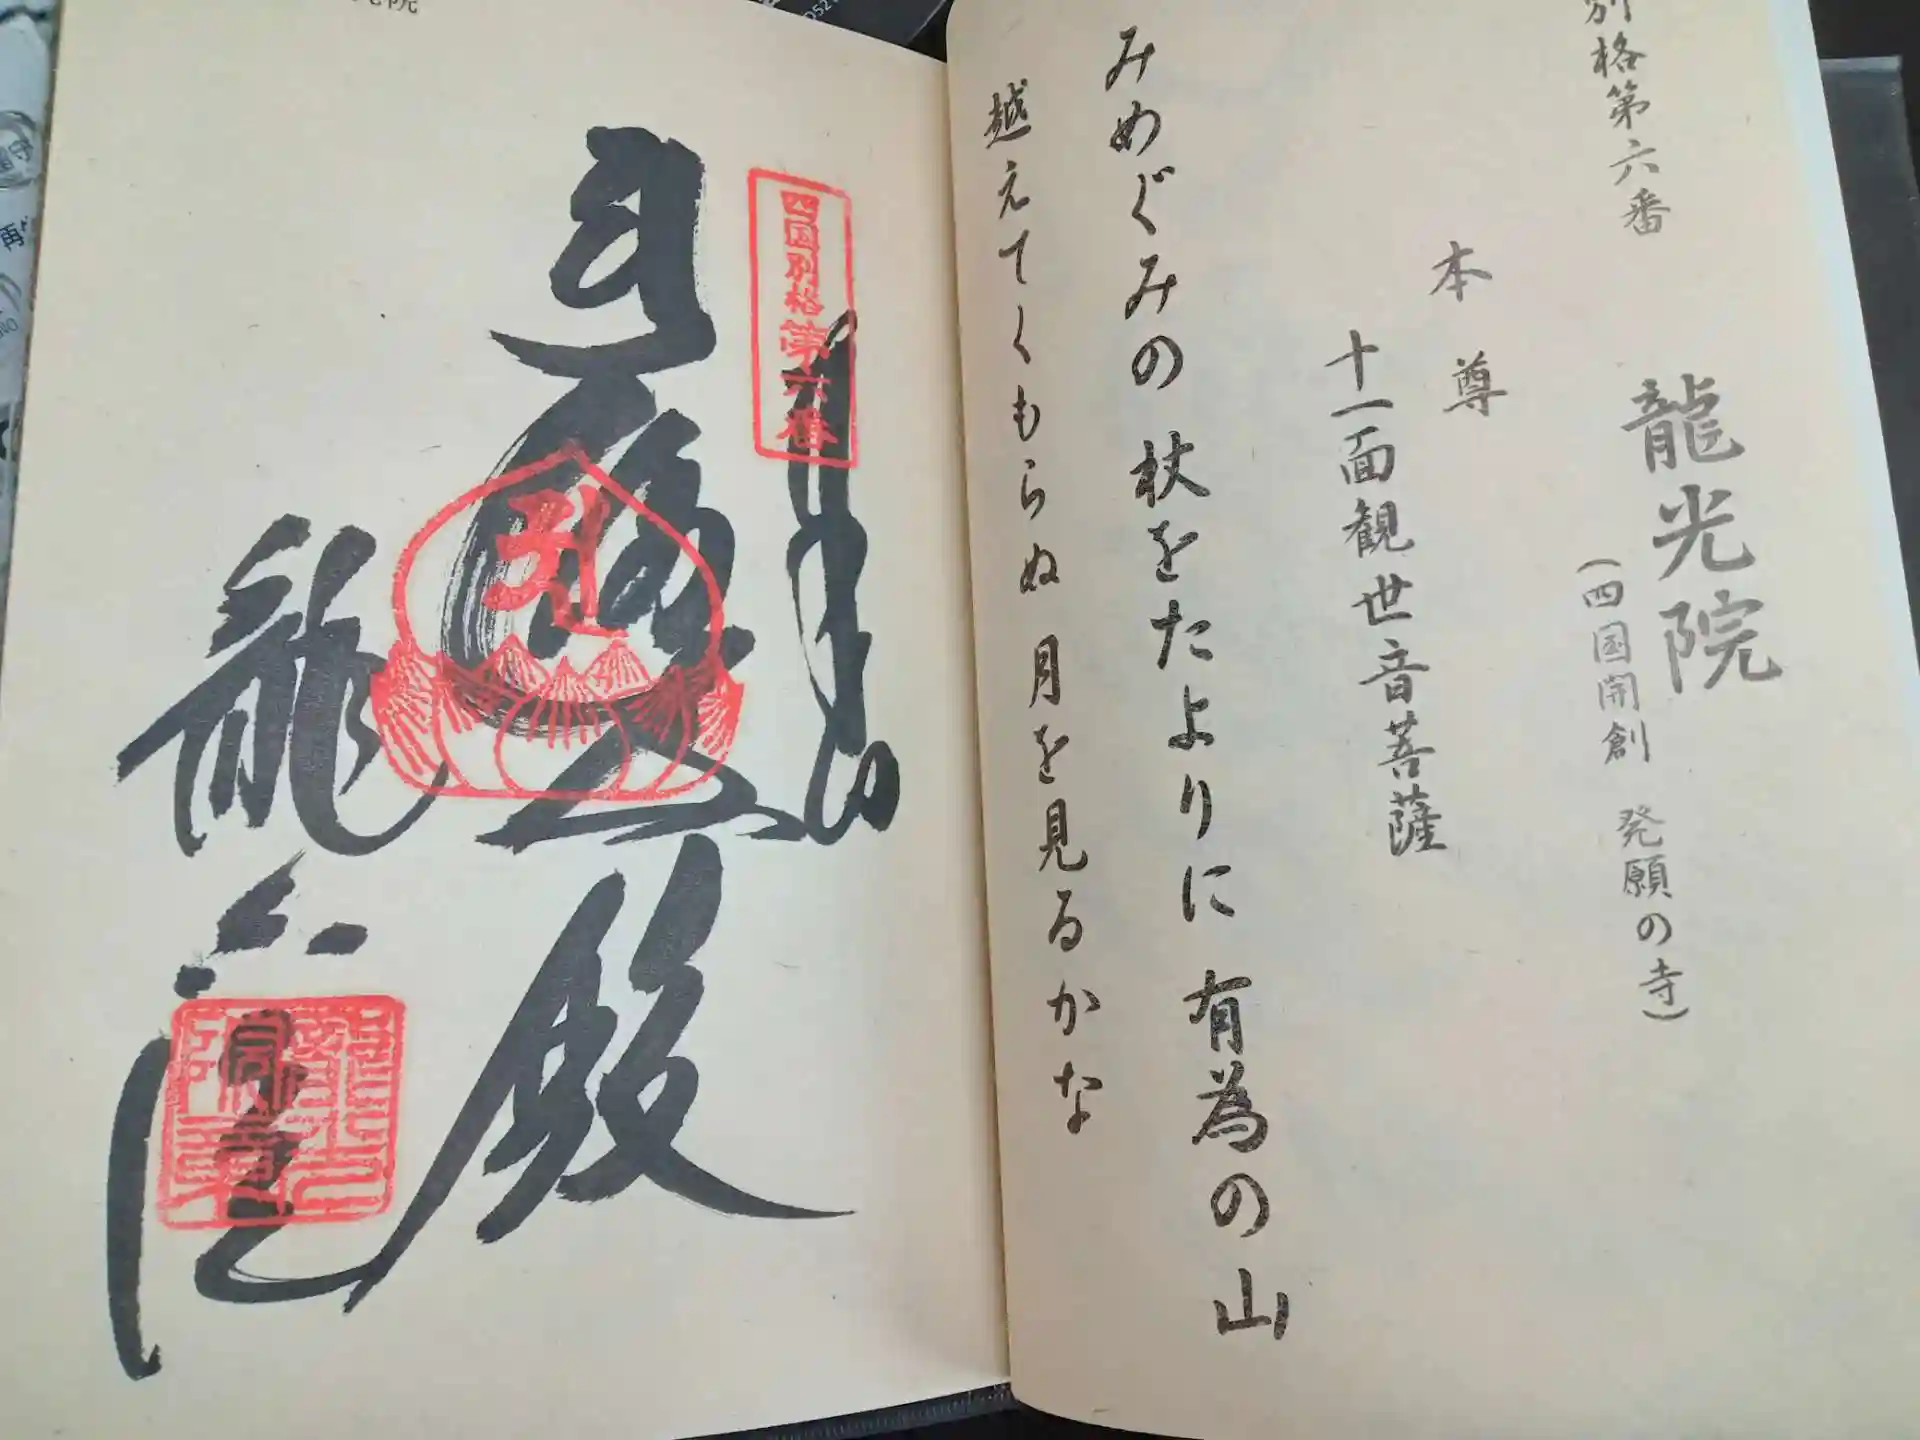 別格第六番
龍光院
(四国開創 発願の寺)
本尊
十一面観世音菩薩
みめぐみの杖をたよりに 有為の山
越えてくもらぬ 月を見るかな
四国別格第六番
奉
殿
龍光院
龍光
院章
院